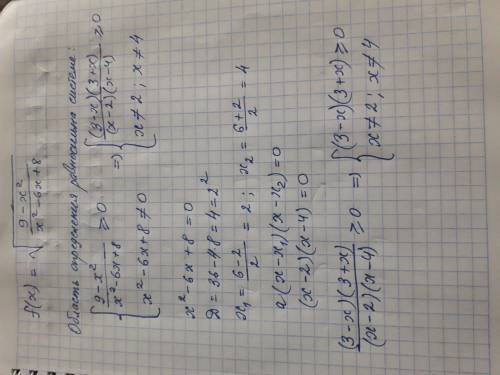 f(x) = √((9-x²)/(x²-6x+8))
Область определения равносильна системе:
{ (9-x²)/(x²-6x+8) ≥ 0 => { ((3-x)(3+x))/((x-2)(x-4)) ≥ 0
{ x²-6x+8 ≠ 0 { x ≠ 2; x ≠ 4
x²-6x+8 = 0
D = 36-4·8 = 4 = 2²
x₁ = (6-2)/2 = 2; x₂ = (6+2)/2 = 4
a(x-x₁)(x-x₂) = 0
(x-2)(x-4) = 0
((3-x)(3+x))/((x-2)(x-4)) ≥ 0 => { (3-x)(3+x) ≥ 0
{ x ≠ 2; x ≠ 4